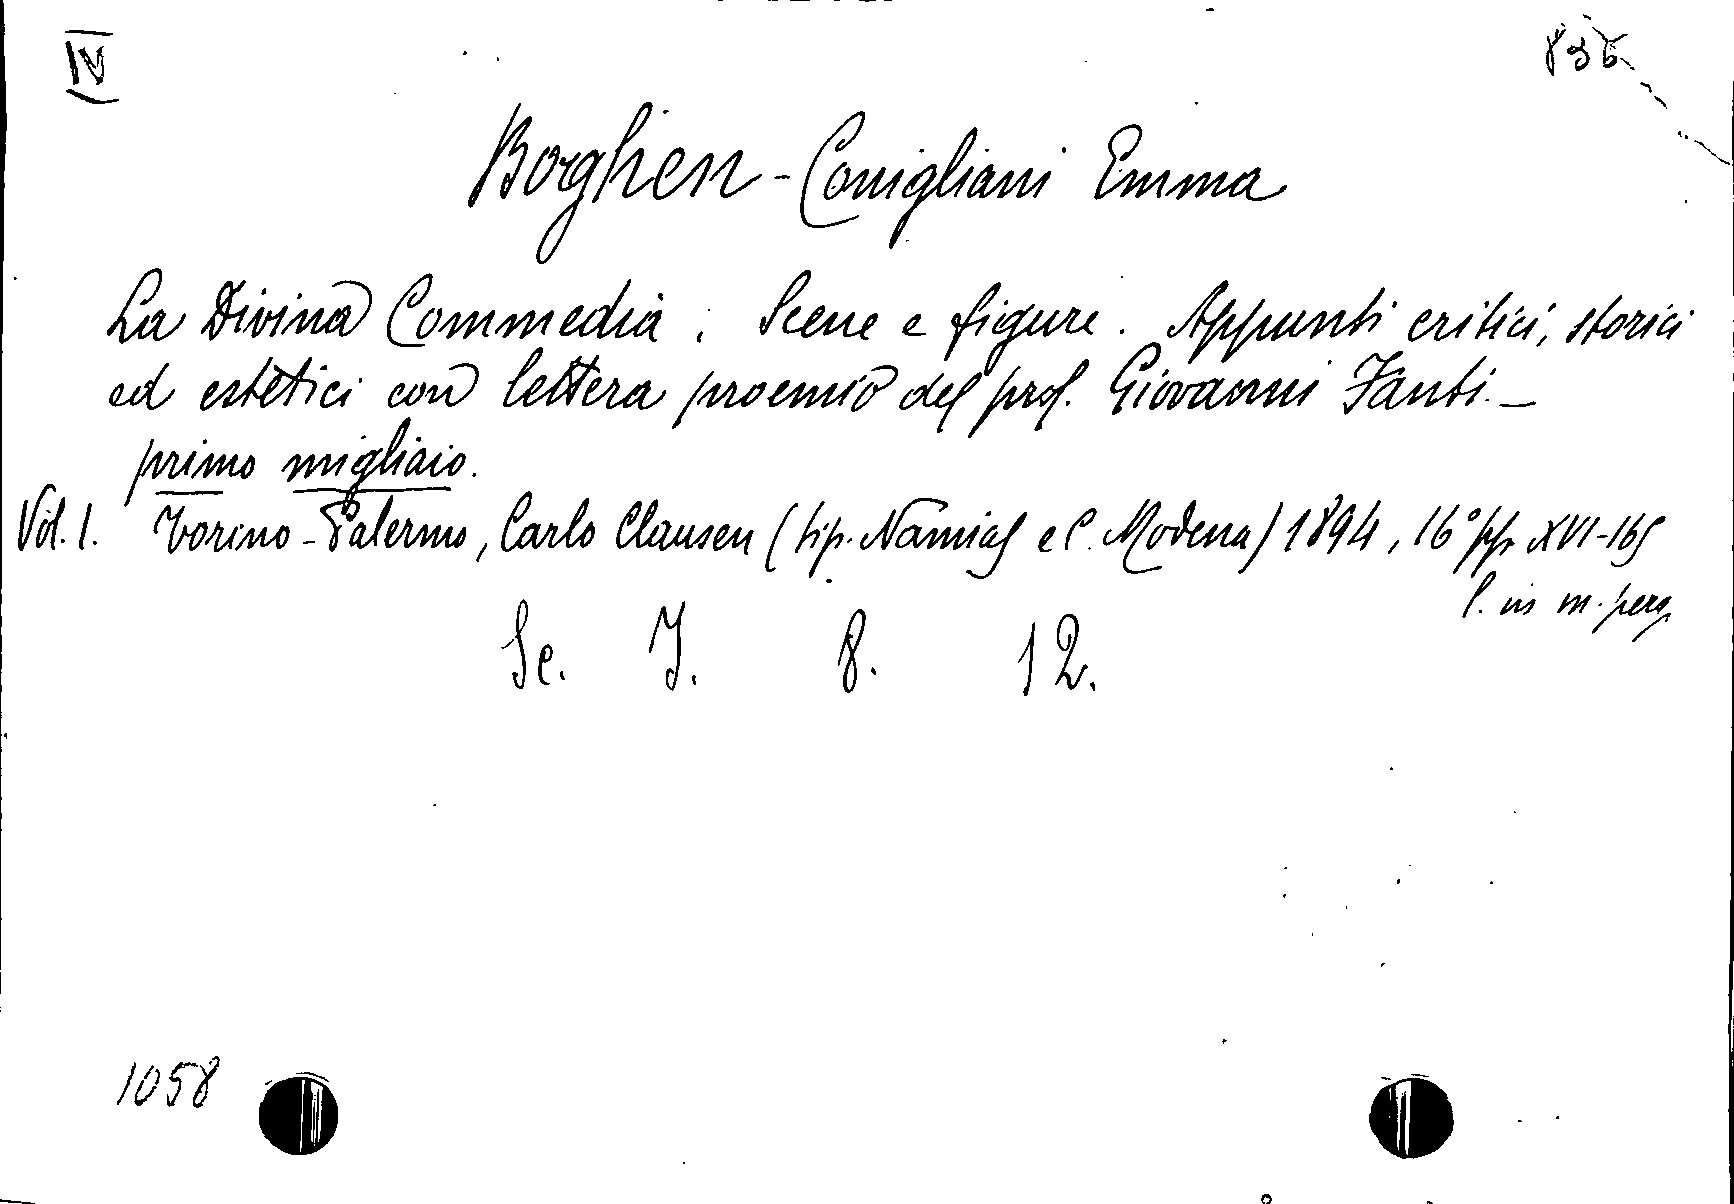 IV
836
Borghen - Conigliani Emma
La Divina Commedia. Scene e figure. Appunti critici, storici
ed estetici con lettera proemio del prof. Giovanni Fanti. -
primo migliaio.
Vol. 1. Torino - Palermo, Carlo Clausen (tip. Namias e C. Modena) 1894, 16° pp. XVI-165
l. in m. perg.
Sc. I. 8. 12.
1058